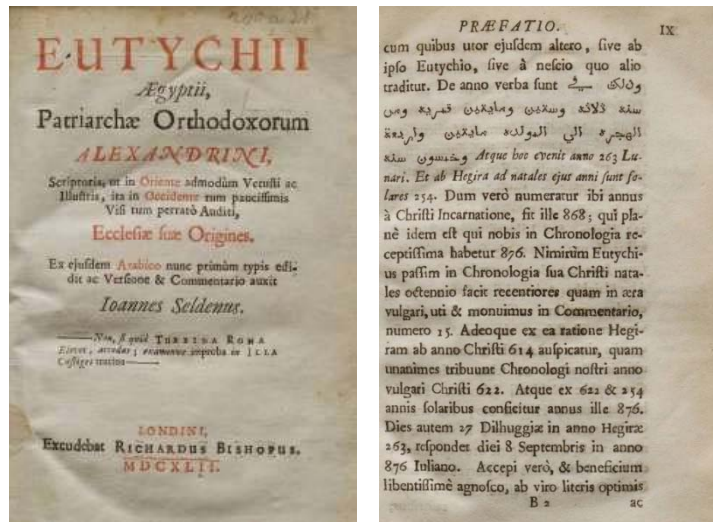 EUTYCHII
Ægyptii,
Patriarchæ Orthodoxorum
ALEXANDRINI,
Scriptoris, ut in Oriente admodùm Vetusti ac
Illustris, ita in Occidente tum paucissimis
Visi tum perrarò Auditi,
Ecclesiæ suæ Origines.
Ex ejusdem Arabico nunc primùm typis edi-
dit ac Versione & Commentario auxit
Ioannes Seldenus.
Non, si quid TURBIDA ROMA
Elevet, accedas; examenve improbum in ILLA
Castiges trutina
LONDINI,
Excudebat RICHARDUS BISHOPUS.
MDCXLII.
PRÆFATIO. IX
cum quibus utor ejusdem altero, sive ab
ipso Eutychio, sive à nescio quo alio
traditur. De anno verba sunt وذلك في
سنه ثلاثه وستين ومايتين قمريه ومن
الهجره الي المولده مايتين واربعة
وخمسون سنه Atque hoc evenit anno 263 Lu-
nari. Et ab Hegira ad natales ejus anni sunt so-
lares 254. Dum verò numeratur ibi annus
à Christi Incarnatione, fit ille 868; qui pla-
nè idem est qui nobis in Chronologia re-
ceptissima habetur 876. Nimirùm Eutychi-
us passim in Chronologia sua Christi nata-
les octennio facit recentiores quam in æra
vulgari, uti & monuimus in Commentario,
numero 15. Adeoque ex ea ratione Hegi-
ram ab anno Christi 614 auspicatur, quam
unanimes tribuunt Chronologi nostri anno
vulgari Christi 622. Atque ex 622 & 254
annis solaribus conficitur annus ille 876.
Dies autem 27 Dilhuggiæ in anno Hegiræ
263, respondet diei 8 Septembris in anno
876 Iuliano. Accepi verò, & beneficium
libentissimè agnosco, ab viro literis optimis
B 2 ac